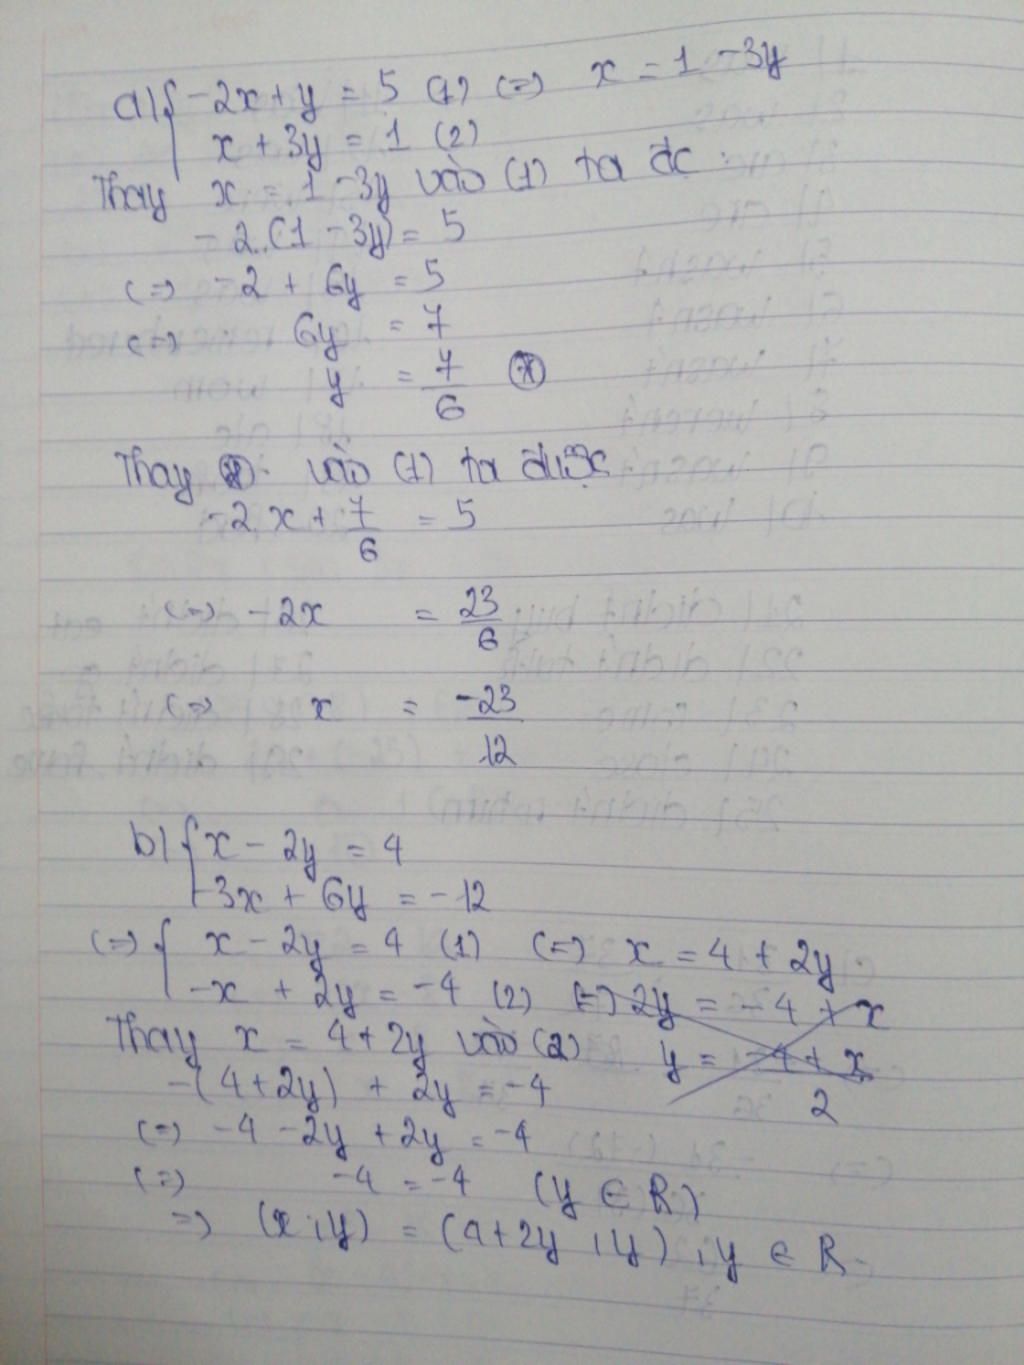 a) { -2x + y = 5 (1) (=) x = 1 - 3y
x + 3y = 1 (2)
Thay x = 1 - 3y vào (1) ta đc :
- 2.(1 - 3y) = 5
(=) -2 + 6y = 5
(=) 6y = 7
y = 7/6 (*)
Thay (*) vào (1) ta được
-2.x + 7/6 = 5
(=) -2x = 23/6
(=) x = -23/12
b) { x - 2y = 4
-3x + 6y = -12
(=) { x - 2y = 4 (1) (=) x = 4 + 2y
-x + 2y = -4 (2) (=) 2y = -4 + x
Thay x = 4 + 2y vào (2) y = -4 + x / 2
-(4 + 2y) + 2y = -4
(=) -4 - 2y + 2y = -4
(=) -4 = -4 (y ∈ R)
=) (x ; y) = (4 + 2y ; y) , y ∈ R.